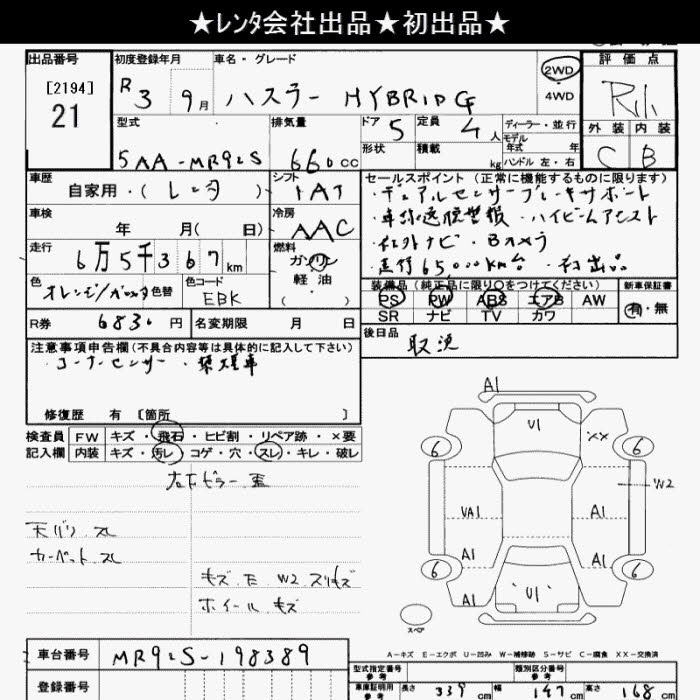 ★レンタ会社出品★初出品★
出品番号
[2194]
21
初度登録年月
R3 9月
車名・グレード
ハスラー HYBRID G
2WD
4WD
評価点
外装 内装
C B
型式
5AA-MR92S
排気量
660cc
ドア 5
形状
定員 4人
積載 kg
ディーラー・並行
モデル年式 年
ハンドル 左・右
車歴
自家用・(レンタ)
シフト
IAT
セールスポイント (正常に機能するものに限ります)
・デュアルセンサーブレーキサポート
・車線逸脱警報・ハイビームアシスト
・社外ナビ・Bカメラ
・走行65,000km台・初出品
車検
年 月( 日)
冷房
AAC
走行
6万5千367km
燃料
ガソリン
軽油
( )
色
色替
色コード
EBK
装備品 (純正品に限り○をつけてください)
PS PW ABS エアB AW
SR ナビ TV カワ
新車保証書
有・無
R券 6830円
名変期限 月 日
後日品
取説
注意事項申告欄 (不具合内容等は具体的に記入して下さい)
・コーナーセンサー・禁煙車
修復歴 有 〔箇所 〕
検査員
記入欄
FW キズ・飛石・ヒビ割・リペア跡・×要
内装 キズ・汚レ・コゲ・穴・スレ・キレ・破レ
天バリ スレ
カーペット スレ
キズ E W2 スリキズ
ホイール キズ
A1
U1
XX
6
6
W2
UA1
A1
A1
A1
6
6
A1
U1
A1
スペア
A-キズ E-エクボ U-凹み W-補修跡 S-サビ C-腐食 XX-交換済
車台番号
MR92S-198389
登録番号
型式指定番号
参考
類別区分番号
参考
車庫証明用
参考
長さ 339cm
幅 147cm
高さ 168cm